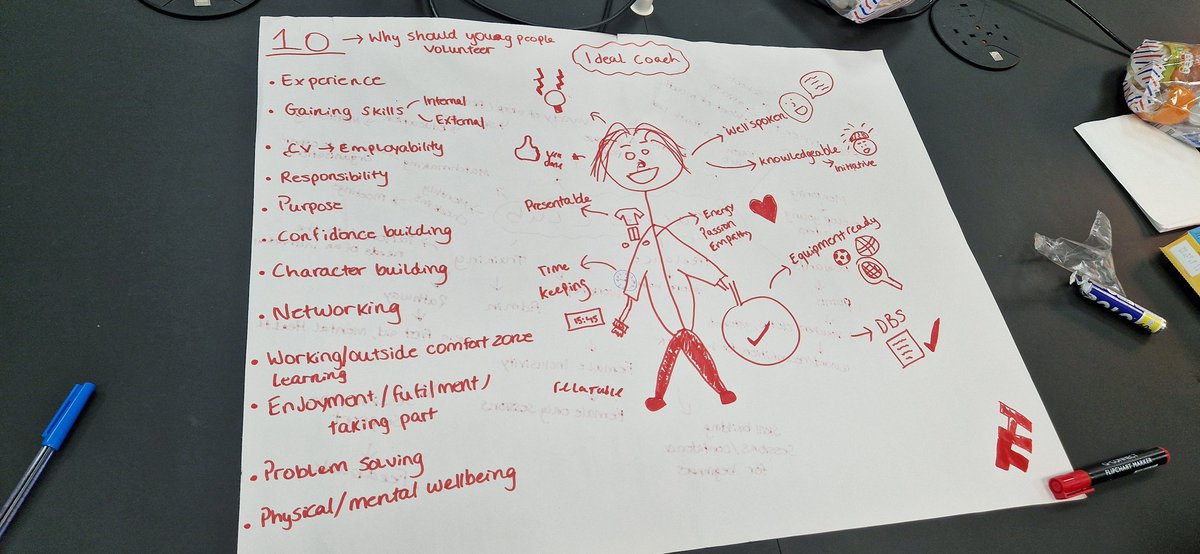 10 → Why should young people
volunteer
• Experience
• Gaining skills Internal
External
• CV → Employability
• Responsibility
• Purpose
• Confidence building
• Character building
• Networking
• Working/outside comfort zone
learning
• Enjoyment/fulfilment/
taking part
• Problem solving
• Physical/mental wellbeing
Ideal Coach
Well spoken
Knowledgeable
→ Initiative
Presentable
Energy
Passion
Empathy
Equipment ready
Time
keeping
15:45
DBS
rellatable
FLIPCHART-MARKER